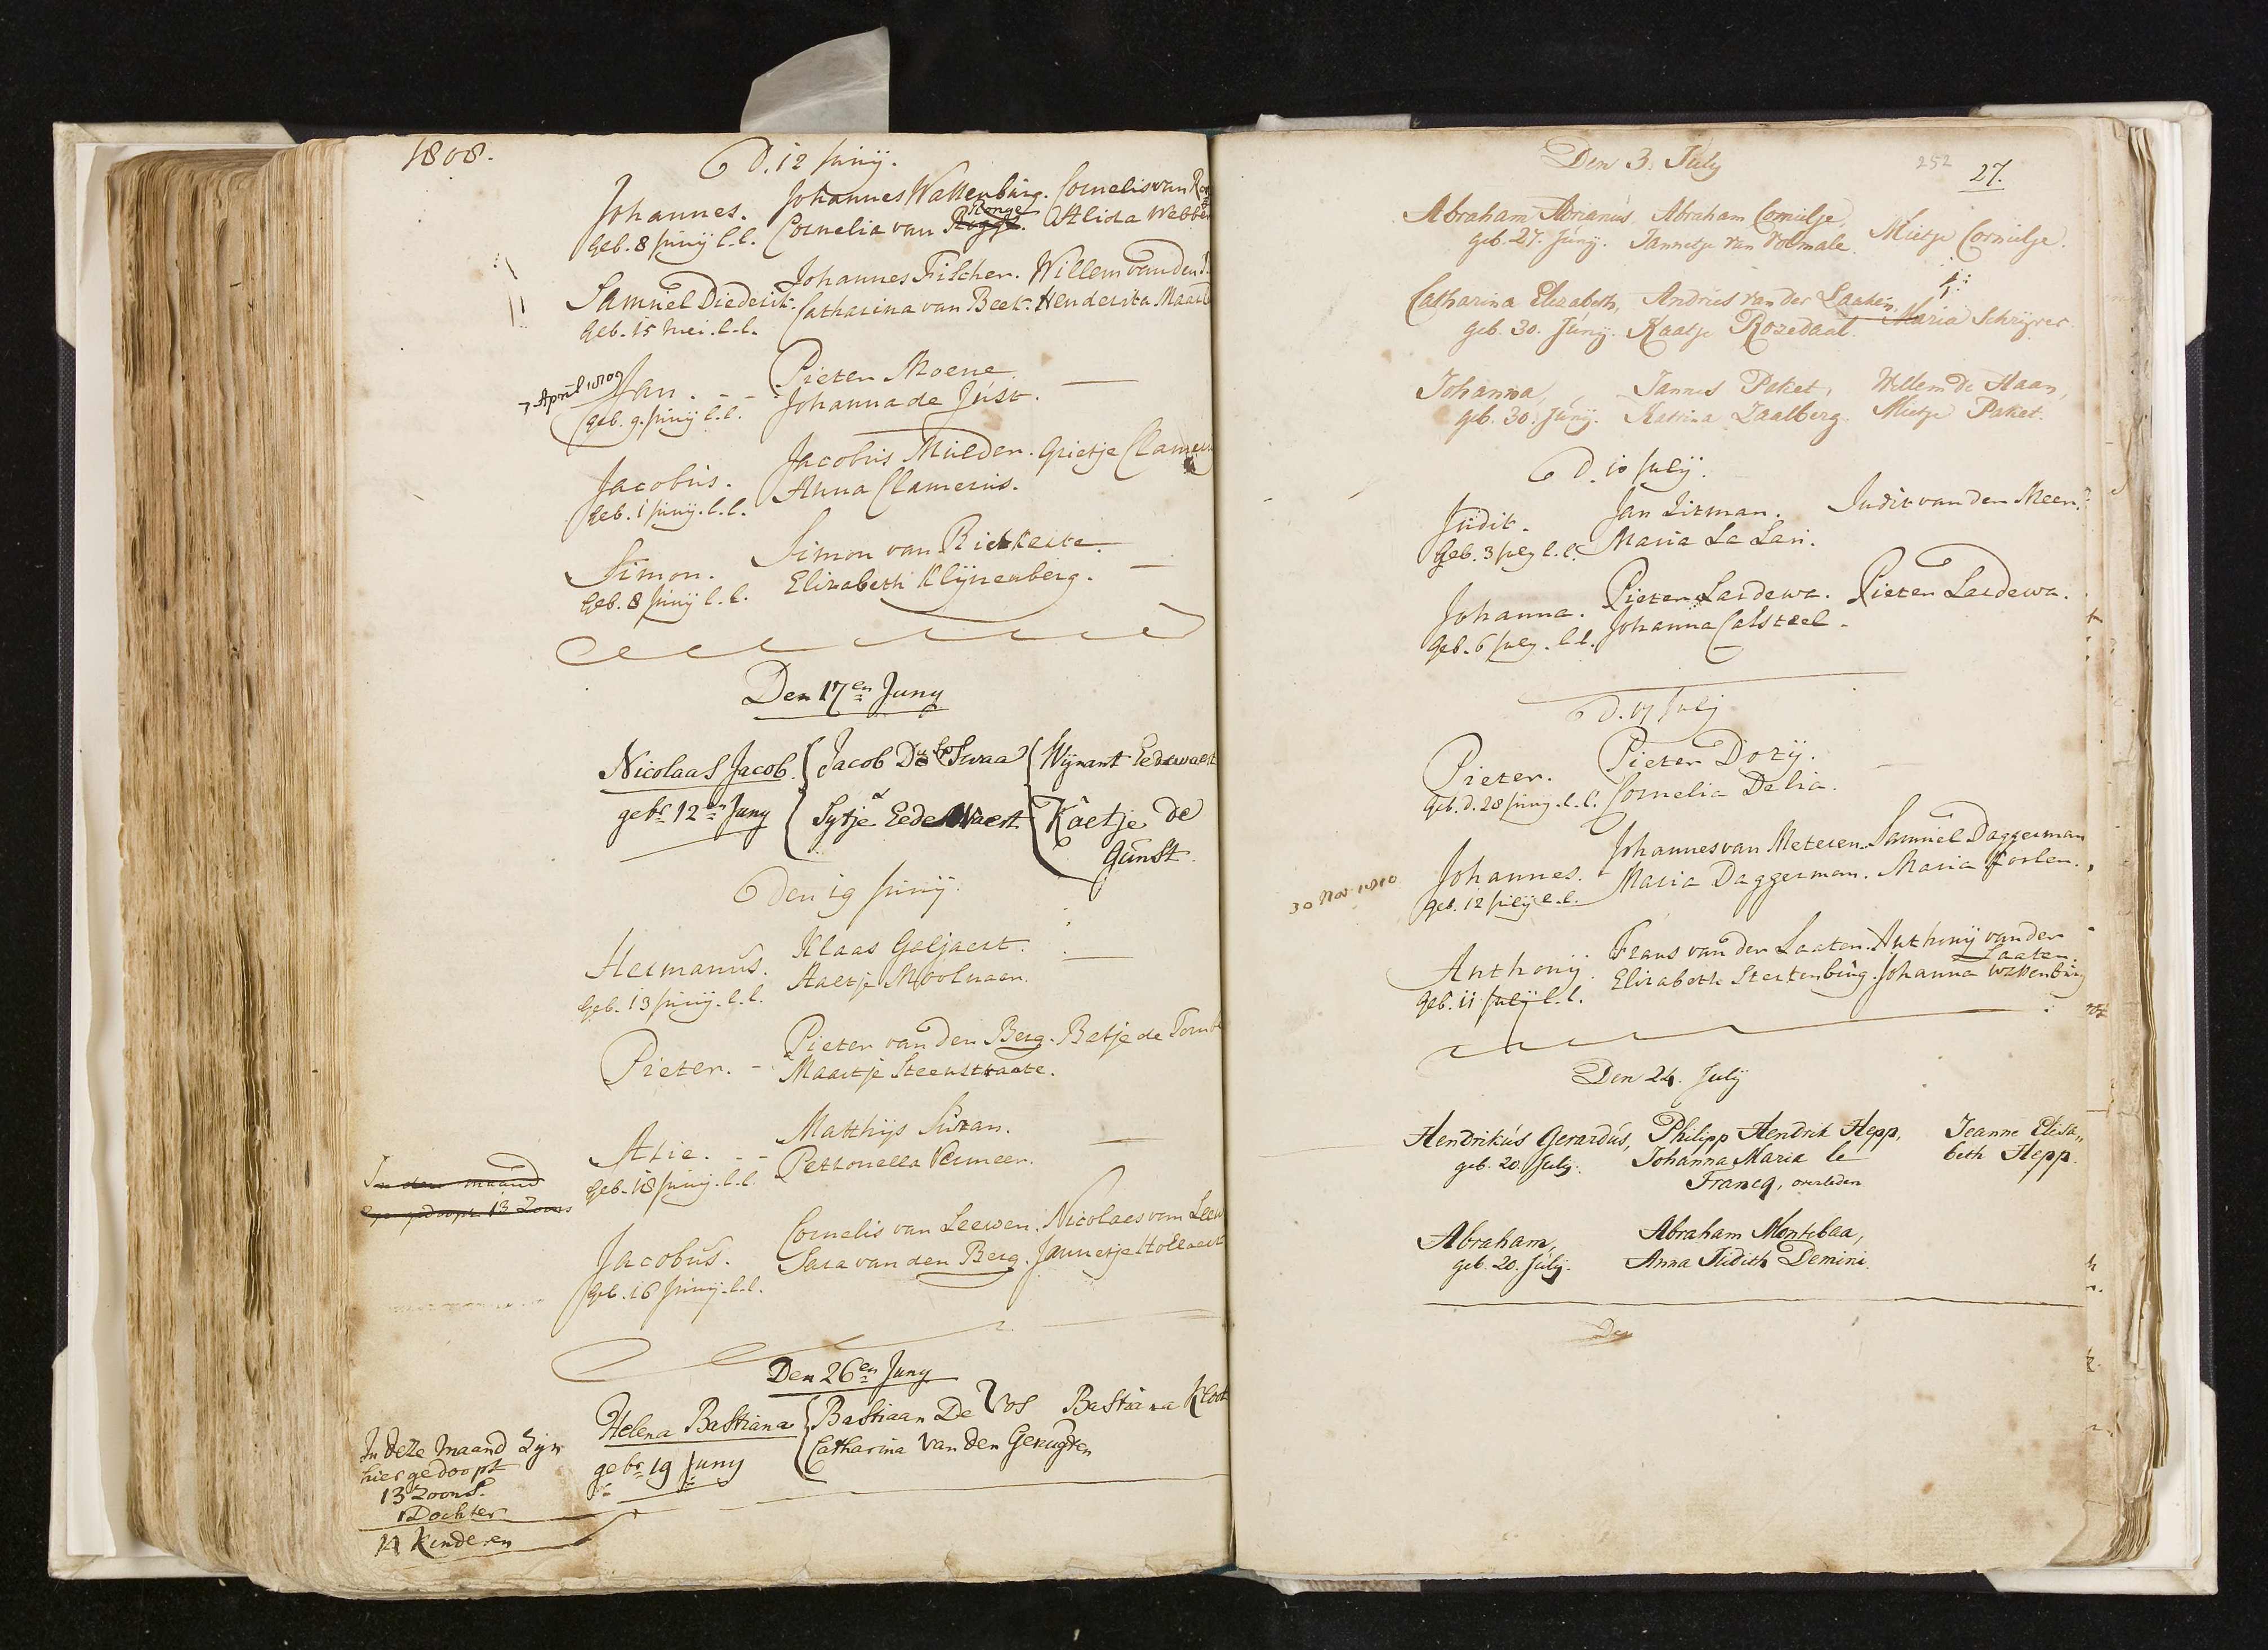 1808.
D. 12 Junij.
Johannes. Johannes Wattenburg. Cornelis van
geb. 8 Junij l.l. Cornelia van Rogge. Ronge Alida Webbe
Johannes Fischer. Willem van den
Samuel Diederik. Catharina van Beek. Henderika
geb. 15 Mei. l.l.
7 April 1809
Jan. - - Pieter Moene
geb. 9. Junij l.l. Johanna de Just.
Jacobus. Jacobus Mulder. Grietje
geb. 1 Junij. l.l. Anna Clamerus.
Simon. Simon van
geb. 8 Junij l.l. Elizabeth Klijnenberg.
Den 17en Juny
Nicolaas Jacob. Jacob Wijnant Eedewaert
gebr. 12en Juny Sytje Eedewaert Kaetje de
Gunst.
den 19 Junij.
Hermanus. Klaas Galjaert.
geb. 13 Junij. l.l. Aaltje Moolnaer.
Pieter. - Pieter van den Berg. Batje de
Maartje Steenstraate.
Arie. - - Matthijs
geb. 18 Junij. l.l. Petronella Vermeer.
In dese maand
gedoopt 13 Zoons
Jacobus. Cornelis van Leewen. Nicolaes van
geb. 16 Junij. l.l. Sara van den Berg. Jannetje
Den 26en Juny
Helena Bastiana Bastiaan De Vos Bastiana
gebr. 19 Juny Catharina van den
In deze maand zyn
hier gedoopt
13 Zoons.
1 Dochter
14 Kinderen
Den 3. July
252
27.
Abraham Adrianus, Abraham Cornielje, Mietje Cornielje.
geb. 27. Junij. Jannetje van Volmale.
Catharina Elizabeth, Andries van der Laaken. Maria Schrijver.
geb. 30. Junij. Kaatje Rozedaal.
Johanna, Jannes Paket, Willem de Haan,
geb. 30. Junij. Katrina Zaalberg. Mietje Paket.
D. 10 Julij.
Judit. Jan Zitman. Judit van der Meer.
geb. 3 July l.l. Maria La Lau.
Johanna. Pieter Lardewa. Pieter Lardewa.
geb. 6 July. l.l. Johanna Casteel.
D. 17 Julij
Pieter. Pieter Dozy.
geb. d. 28 Junij. l.l. Cornelia Delia.
30 Nov 1810
Johannes. Johannes van Meteren. Samuel Daggerman
geb. 12 Julij l.l. Maria Daggerman. Maria
Anthonij. Frans van der Laaten. Anthonij van der
Laaten.
geb. 11 Julij l.l. Elizabeth Stertenburg. Johanna Wattenburg
Den 24. July
Hendrikus Gerardus, Philipp Hendrik Hepp, Jeanne Elisa„
geb. 20. July. Johanna Maria le beth Hepp.
Francq, overleden
Abraham, Abraham Montebaa,
geb. 20. July. Anna Judith Demini.
Den